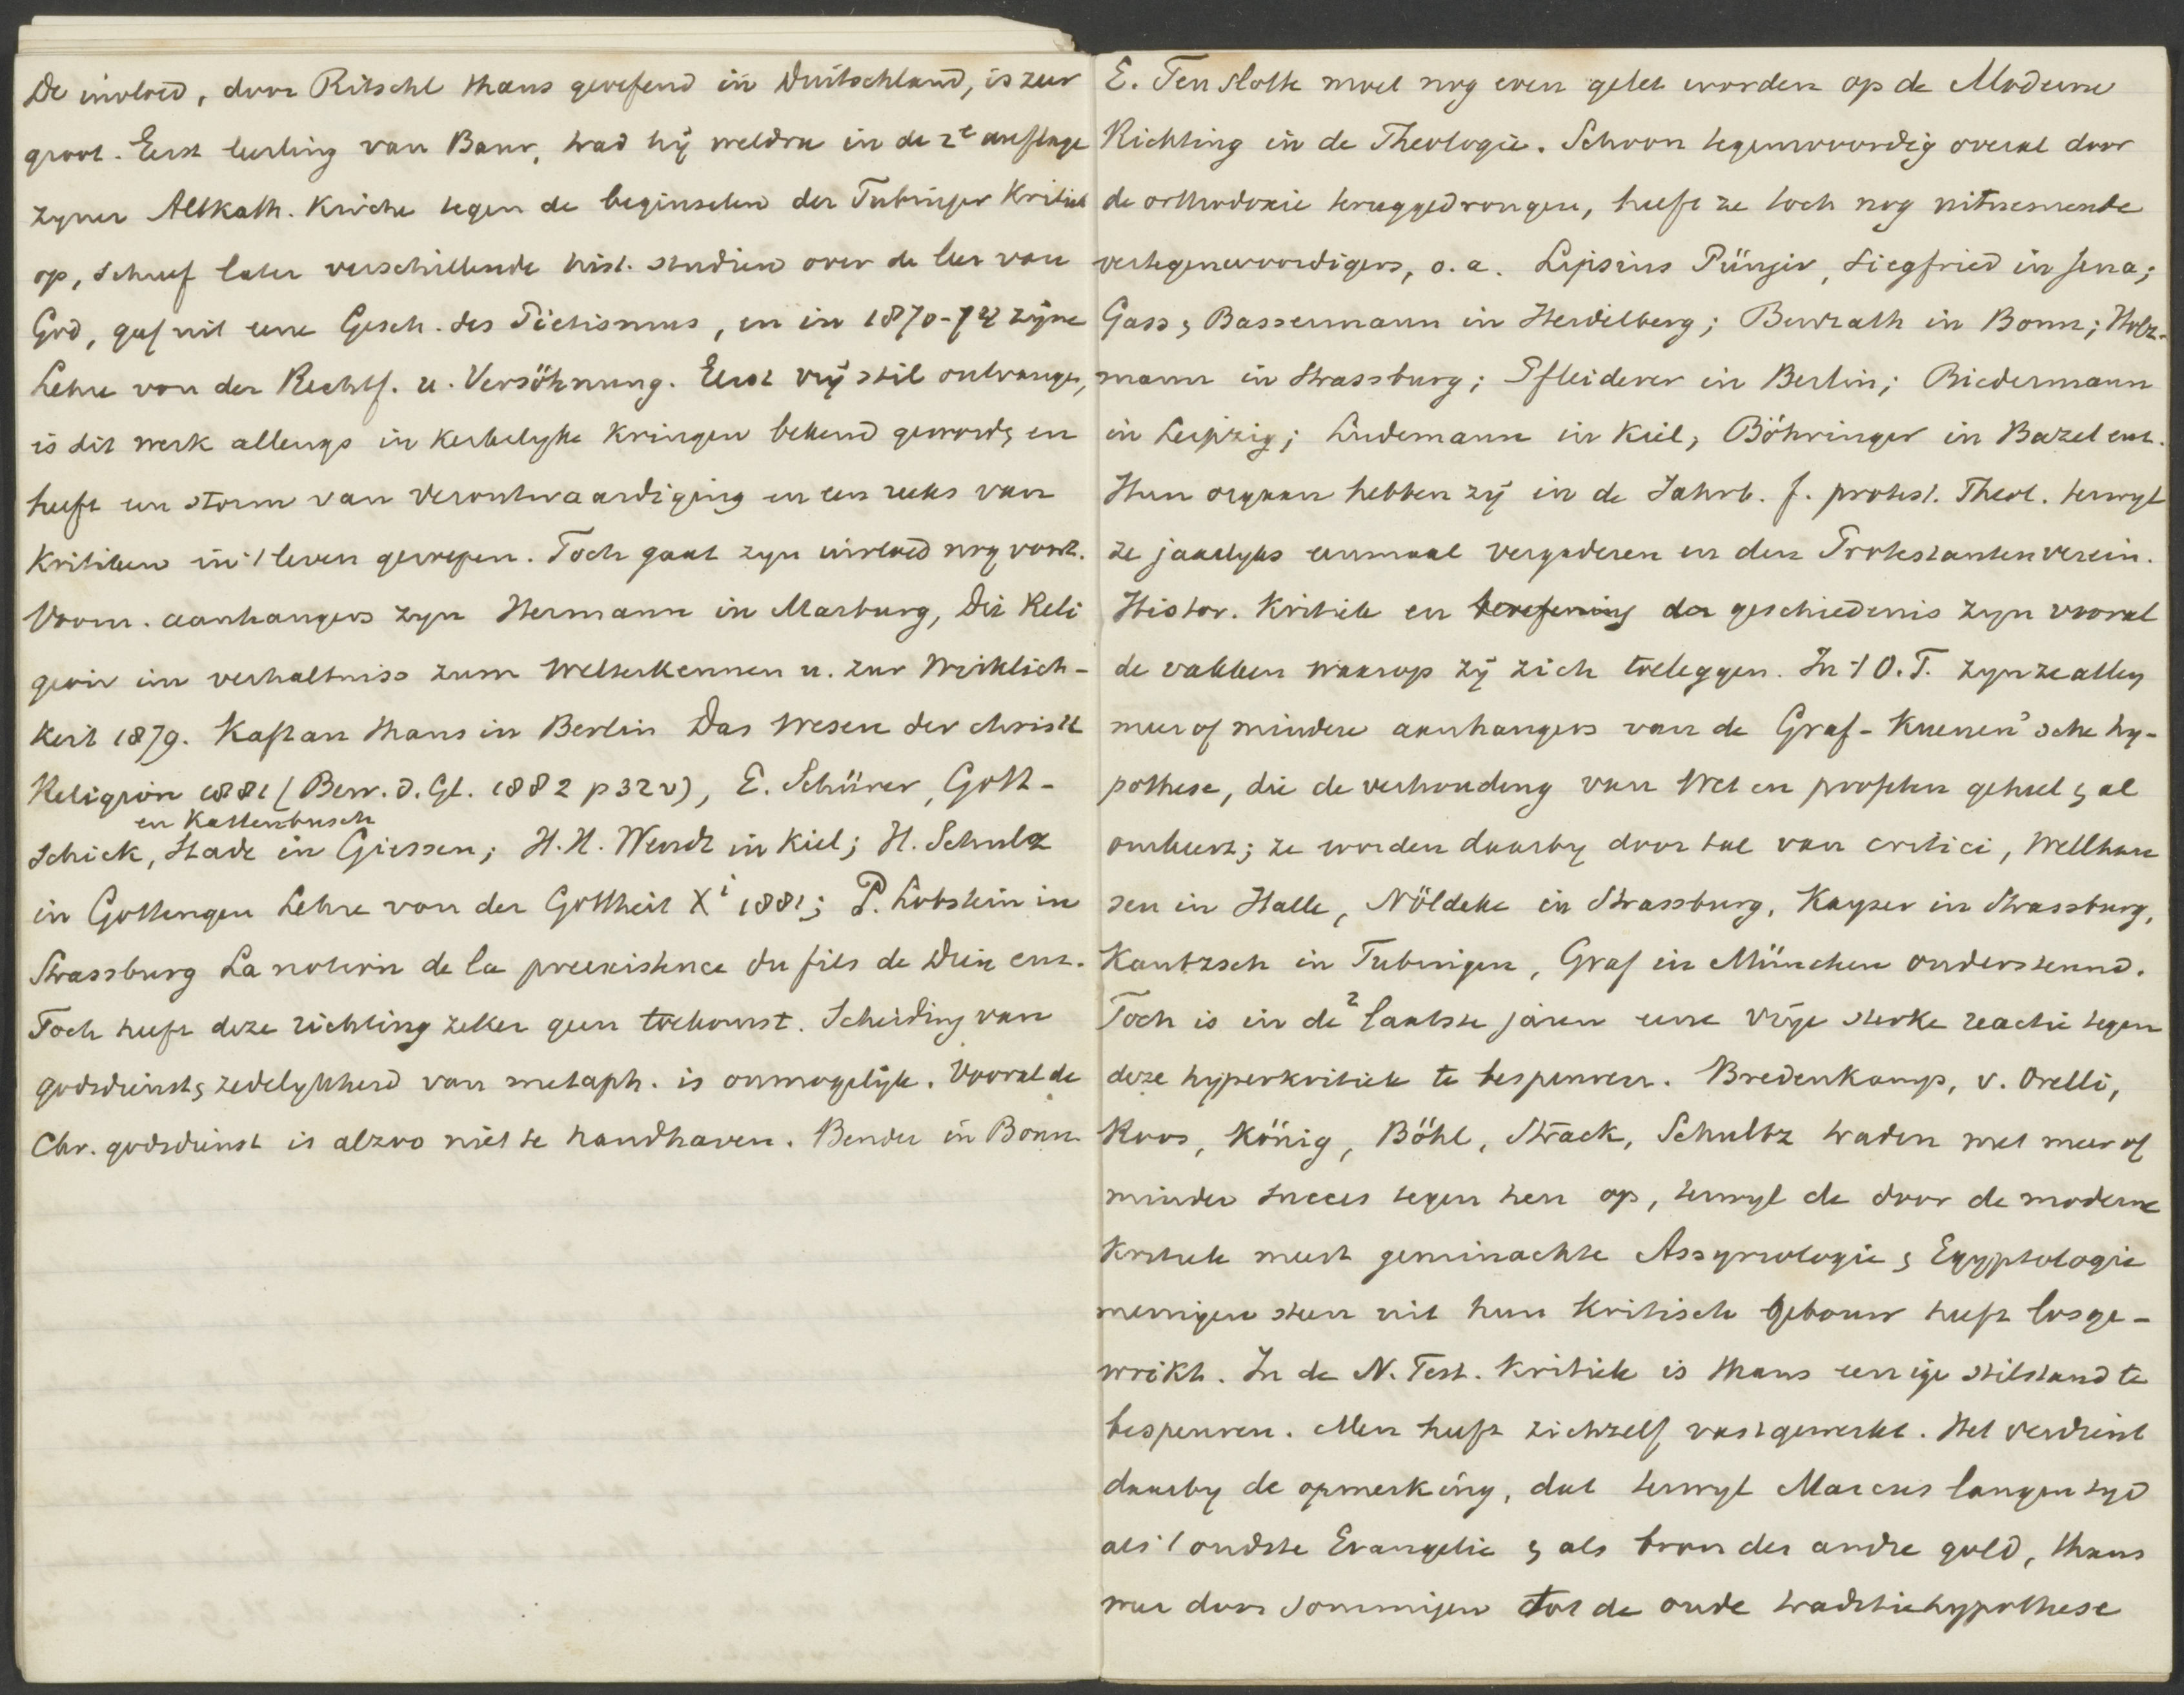 De invloed, door Ritschl thans geoefend in Duitschland, is zeer
groot. Eerst leerling van Baur, trad hij weldra in de 2e auflage
zyner Altkath. Kirche tegen de beginselen der Tubinger Kritiek
op, schreef later verschillende hist. studien over de leer van
God, gaf uit eene Gesch. des Pietismus, en in 1870-74 zijne
Lehre von der Rechtf. u. Versöhnung. Eerst vrij stil ontvangen,
is dit werk allengs in kerkelyke kringen bekend geword, en
heeft een storm van verontwaardiging en een reeks van
kritieken in 't leven geroepen. Toch gaat zyn invloed nog voort.
Voorn. aanhangers zyn Hermann in Marburg, Die Reli
gion im verhaltniss zum Welterkennen u. zur Wirklich-
keit 1879. Kaftan thans in Berlin Das Wesen der christl
Religion 1881 (Bew. d. Gl. 1882 p 32v), E. Schürer, Gott-
en Kattenbusch
schick, Stade in Giessen; H.H. Wendt in Kiel; H. Schulz
in Gottengen Lehre von der Gottheit Xi 1881; P. Lobstein in
Strassburg La notion de la preexistence du fils de Dieu enz.
Toch heeft deze richting zeker geen toekomst. Scheiding van
godsdienst & zedelykheid van metaph. is onmogelijk. Vooral de
Chr. godsdienst is alzoo niet te handhaven. Bender in Bonn
E. Ten slotte moet nog even gelet worden op de Moderne
Richting in de Theologie. Schoon tegenwoordig overal door
de orthodoxie teruggedrongen, heeft ze toch nog uitnemende
vertegenwoordigers, o.a. Lipsius Pünjer, Siegfried in Jena;
Gass & Bassermann in Heidelberg; Benrath in Bonn; Holz-
mann in Strassburg; Pfleiderer in Berlin; Biedermann
in Leipzig; Ludemann in Kiel, Böhringer in Bazel enz.
Hun orgaan hebben zij in de Jahrb. f. protest. Theol. terwyl
ze jaarlyks eenmaal vergaderen in den Protestantenverein.
Histor. Kritiek en beoefening der geschiedenis zyn vooral
de vakken waarop zij zich toeleggen. In 't O.T. zyn ze allen
meer of mindere aanhangers van de Graf-Kuenen'sche hy-
pothese, die de verhouding van Wet en profeten geheel & al
omkeert; ze worden daarby door tal van critici, Wellhau
sen in Halle, Nöldeke in Strassburg, Kayser in Strassburg,
Kautzsch in Tubingen, Graf in München ondersteund.
Toch is in de 2 laatste jaren eene vrije sterke reactie tegen
deze hyperkritiek te bespeuren. Bredenkamp, v. Orelli,
Roos, König, Böhl, Strack, Schultz traden met meer of
minder succes tegen hen op, terwyl de door de moderne
Kritiek meest geminachte Assyriologie & Egyptologie
menigen steen uit hun kritisch gebouw heeft losge-
wrikt. In de N. Test. Kritiek is thans eenige stilstand te
bespeuren. Men heeft zichzelf vastgewerkt. Het verdient
daarby de opmerking, dat terwyl Marcus langen tyd
als 't oudste Evangelie & als bron der andre gold, thans
weer door sommigen tot de oude traditiehypothese